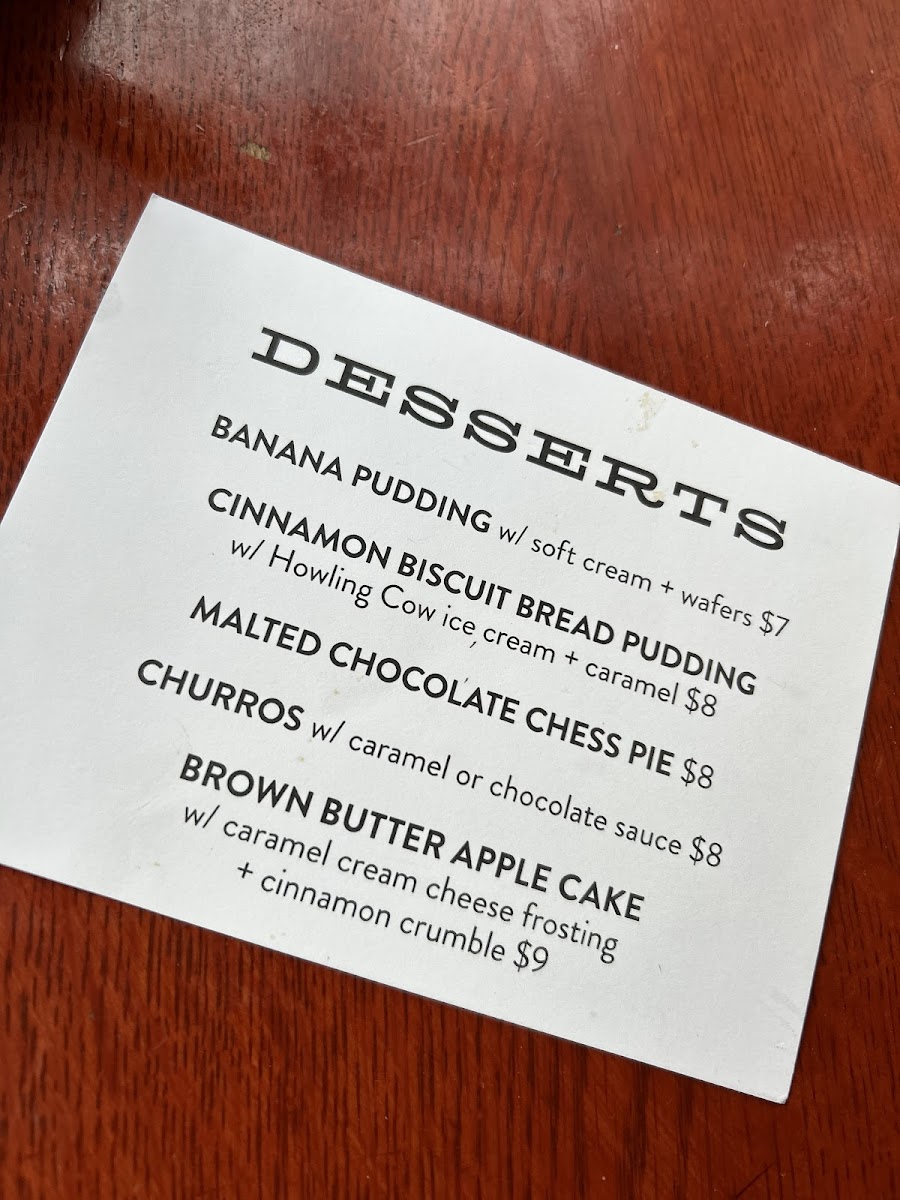 DESSERTS
BANANA PUDDING w/ soft cream + wafers $7
CINNAMON BISCUIT BREAD PUDDING
w/ Howling Cow ice cream + caramel $8
MALTED CHOCOLATE CHESS PIE $8
CHURROS w/ caramel or chocolate sauce $8
BROWN BUTTER APPLE CAKE
w/ caramel cream cheese frosting
+ cinnamon crumble $9